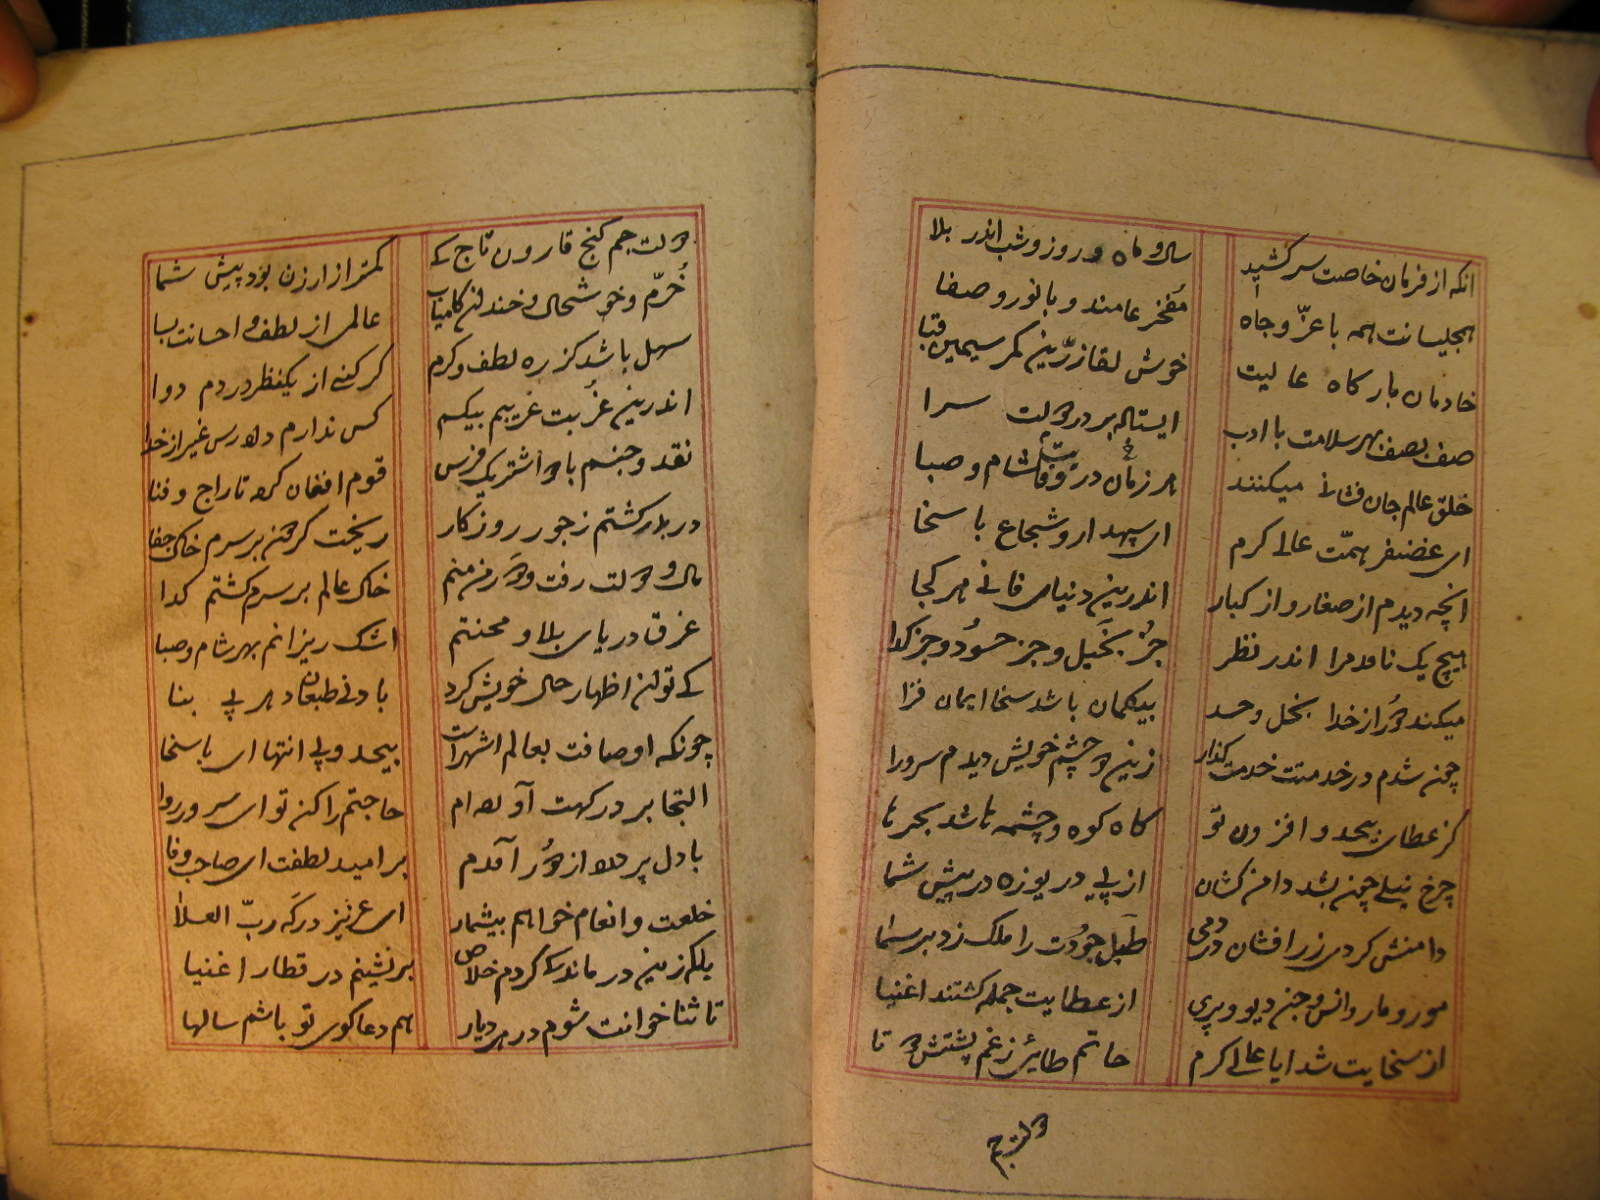 انکه از فرمان خاصت سر کشید سال و ماه و روز و شب اندر بلا
همجلیسانت همه با عزّ و جاه مفخر عامند و با نور و صفا
خادمان بارکاه عالیت خوش لقا زرّین کمر سیمین قبا
صف بصف بهر سلامت با ادب ایستاده بر در دولت سرا
خلق عالم جان فشانی میکنند هر زمان در وقت شام و صبا
ای غضنفر همّت عالی کرم ای سپهدار و شجاع با سخا
انچه دیدم از صغار و از کبار اندرین دنیای فانی هر کجا
هیچ یک نامد مرا اندر نظر جز بخیل و جز حسود و جز کدا
میکند دور از خدا بخل و حسد بیکمان باشد سخا ایمان فزا
چون شدم در خدمتت خدمت کذار زین دو چشم خویش دیدم سرورا
کز عطای بیحد و افزون تو کاه کوه و چشمه باشد بحرها
چرخ نیلی چون بشد دامن کشان از پی دریوزه در پیش شما
دامنش کردی زر افشان در دمی طبل جودت را ملک زد بر سما
مور و مار و انس و جن دیو و پری از عطایت جمله کشتند اغنیا
از سخایت شد ایا عالی کرم حاتم طائی ز غم پشتش دو تا
دولت جم
دولت جم کنج قارون تاج کی کمتر از ارزن بود پیش شما
خُرّم و خوشحال و خندان کامیاب عالمی از لطف و احسانت بسا
سهل باشد کز ره لطف و کرم کر کنی از یکنظر دردم دوا
اندرین غُربت غریبم بیکسم کس ندارم دادرس غیر از خدا
نقد و جنسم با دو اشتر یک فرس قوم افغان کرده تاراج و فنا
دربدر کشتم ز جور روزکار ریخت کردون بر سرم خاک جفا
مال و دولت رفت و در منم خاک عالم بر سرم کشتم کدا
غرق دریای بلا و محنتم اشک ریزانم بهر شام و صبا
کی توان اظهار حال خویش کرد با دنی طبعان دهر بی بنا
چونکه اوصافت بعالم اشهر است بیحد و بی انتها ای با سخا
التجا بر درکهت آورده ام حاجتم را کن تو ای سرور روا
با دل پر درد از دور آمدم بر امید لطفت ای صاحب وفا
خلعت و انعام خواهم بیشمار ای عزیز درکه ربّ العلا
بلکه زین درماندکی کردم خلاص برنشینم در قطار اغنیا
تا ثنا خوانت شوم در هر دیار هم دعا کوی تو باشم سالها